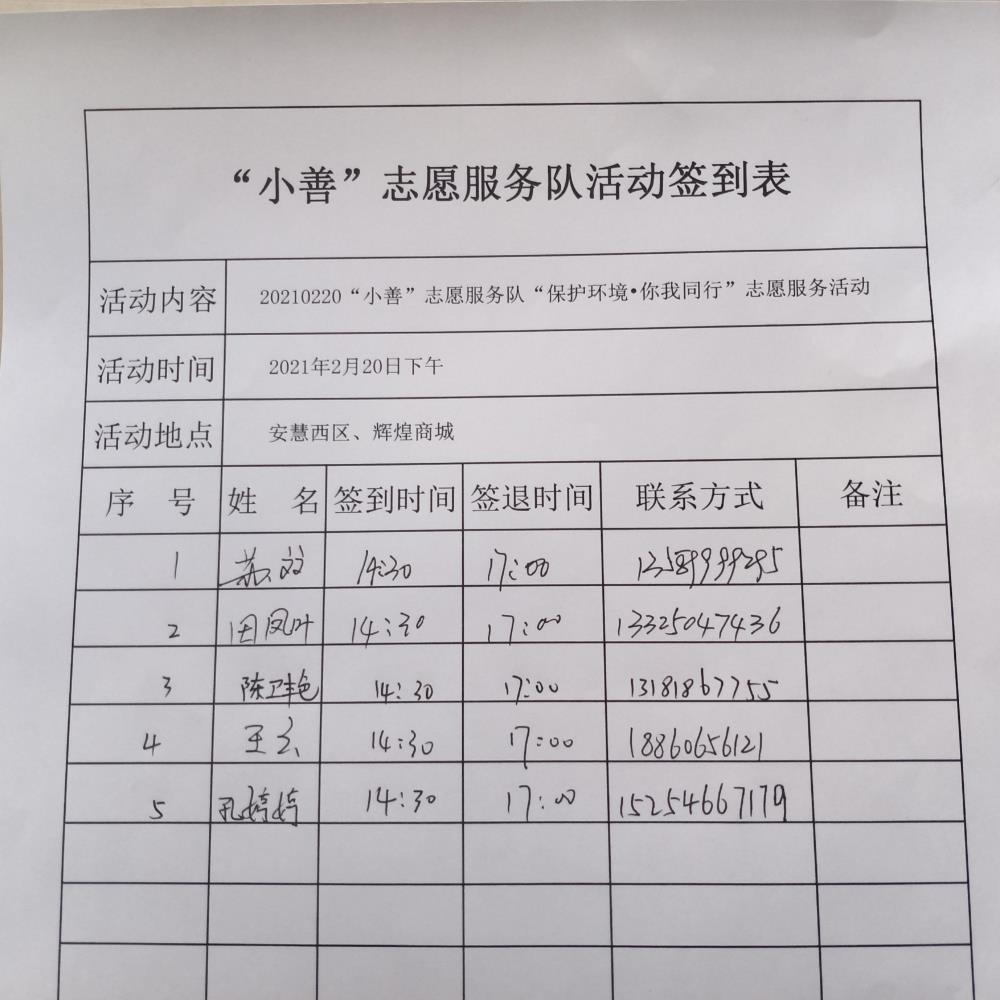 “小善”志愿服务队活动签到表
活动内容 20210220“小善”志愿服务队“保护环境•你我同行”志愿服务活动
活动时间 2021年2月20日下午
活动地点 安慧西区、辉煌商城
序 号 姓 名 签到时间 签退时间 联系方式 备注
1 苏效 14:30 17:00 13589999295
2 田凤叶 14:30 17:00 13325047436
3 陈卫艳 14:30 17:00 13181867755
4 王云 14:30 17:00 18860656121
5 孔婷婷 14:30 17:00 15254667179